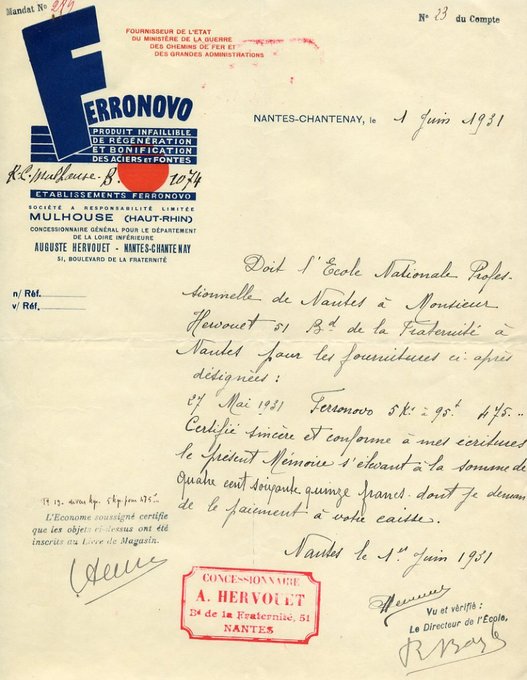 Mandat No 289
No 23 du Compte
FOURNISSEUR DE L'ÉTAT
DU MINISTÈRE DE LA GUERRE
DES CHEMINS DE FER ET
DES GRANDES ADMINISTRATIONS
FERRONOVO
PRODUIT INFAILLIBLE
DE RÉGÉNÉRATION
ET BONIFICATION
DES ACIERS ET FONTES
R.C. Mulhouse. B. 1074
ETABLISSEMENTS FERRONOVO
SOCIÉTÉ A RESPONSABILITÉ LIMITÉE
MULHOUSE (HAUT-RHIN)
CONCESSIONNAIRE GÉNÉRAL POUR LE DÉPARTEMENT
DE LA LOIRE INFÉRIEURE
AUGUSTE HERVOUET - NANTES-CHANTENAY
51, BOULEVARD DE LA FRATERNITÉ
NANTES-CHANTENAY, le 1 Juin 1931
n/ Réf.
v/ Réf.
Doit l'École Nationale Profes-
sionnelle de Nantes à Monsieur
Hervouet 51 Bd de la Fraternité à
Nantes pour les fournitures ci-après
désignées :
27 Mai 1931 Ferronovo 5 Ks à 95f 475..
Certifié sincère et conforme à mes écritures
le présent Mémoire s'élevant à la somme de
quatre cent soixante quinze francs dont je deman
de le paiement à votre caisse.
Nantes le 1er Juin 1931
L'Econome soussigné certifie
que les objets ci-dessus ont été
inscrits au Livre de Magasin.
CONCESSIONNAIRE
A. HERVOUET
Bd de la Fraternité, 51
NANTES
Vu et vérifié :
Le Directeur de l'École,